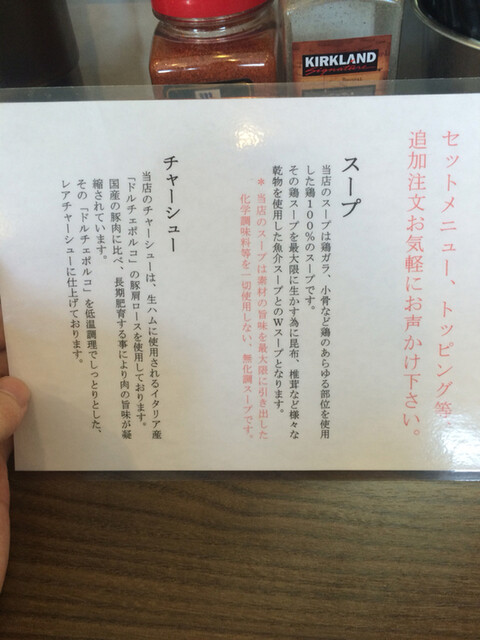 KIRKLAND
Signature
セットメニュー、トッピング等、
追加注文お気軽にお声かけ下さい。
スープ
当店のスープは鶏ガラ、小骨など鶏のあらゆる部位を使用
した鶏100％のスープです。
その鶏スープを最大限に生かす為に昆布、椎茸など様々な
乾物を使用した魚介スープとのWスープとなります。
＊当店のスープは素材の旨味を最大限に引き出した
化学調味料等を一切使用しない、無化調スープです。
チャーシュー
当店のチャーシューは、生ハムに使用されるイタリア産
「ドルチェポルコ」の豚肩ロースを使用しております。
国産の豚肉に比べ、長期肥育する事により肉の旨味が凝
縮されています。
その「ドルチェポルコ」を低温調理でしっとりとした、
レアチャーシューに仕上げております。